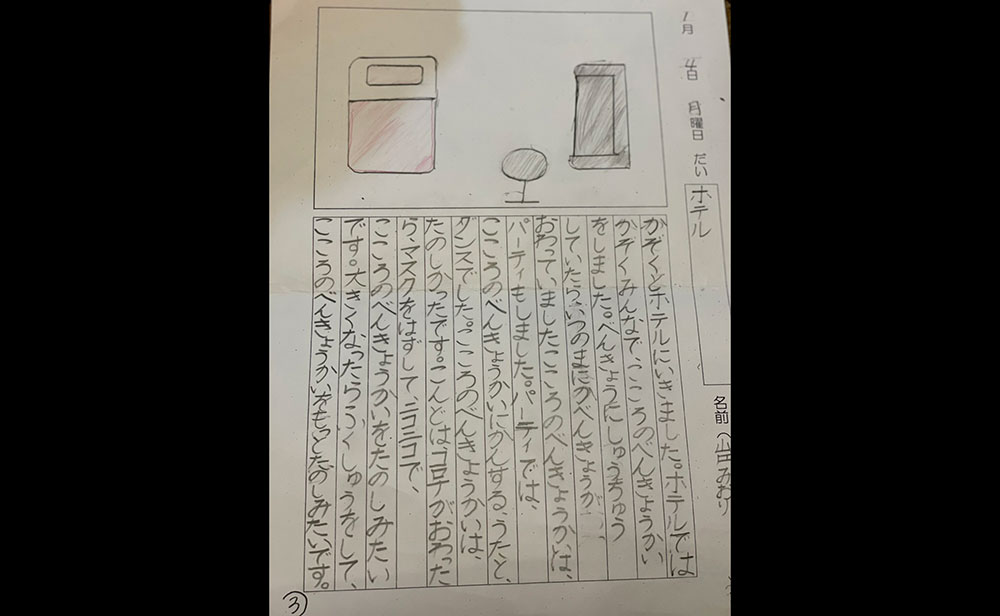 1月 4日 月曜日 だい
ホテル
名前(山 みおり
かぞくとホテルにいきました。ホテルでは
かぞくみんなで、こころのべんきょうかい
をしました。べんきょうにしゅうちゅう
していたら、いつのまにかべんきょうが
おわっていましたこころのべんきょうかいは、
パーティもしました。パーティでは、
こころのべんきょうかいにかんする、うたと、
ダンスでした。こころのべんきょうかいは、
たのしかったです。こんどはコロナがおわった
ら、マスクをはずして、ニコニコで、
こころのべんきょうかいをたのしみたい
です。大きくなったらふくしゅうをして、
こころのべんきょうかいをもっとたのしみたいです。
3